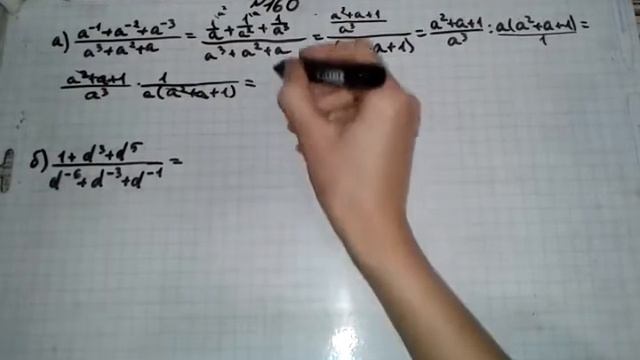 №760
а) (a⁻¹+a⁻²+a⁻³)/(a³+a²+a) = (1/a + 1/a² + 1/a³)/(a³+a²+a) = ((a²+a+1)/a³)/( a+1) = (a²+a+1)/a³ : a(a²+a+1)/1 =
(a²+a+1)/a³ · 1/(a(a²+a+1)) =
б) (1+d³+d⁵)/(d⁻⁶+d⁻³+d⁻¹) =